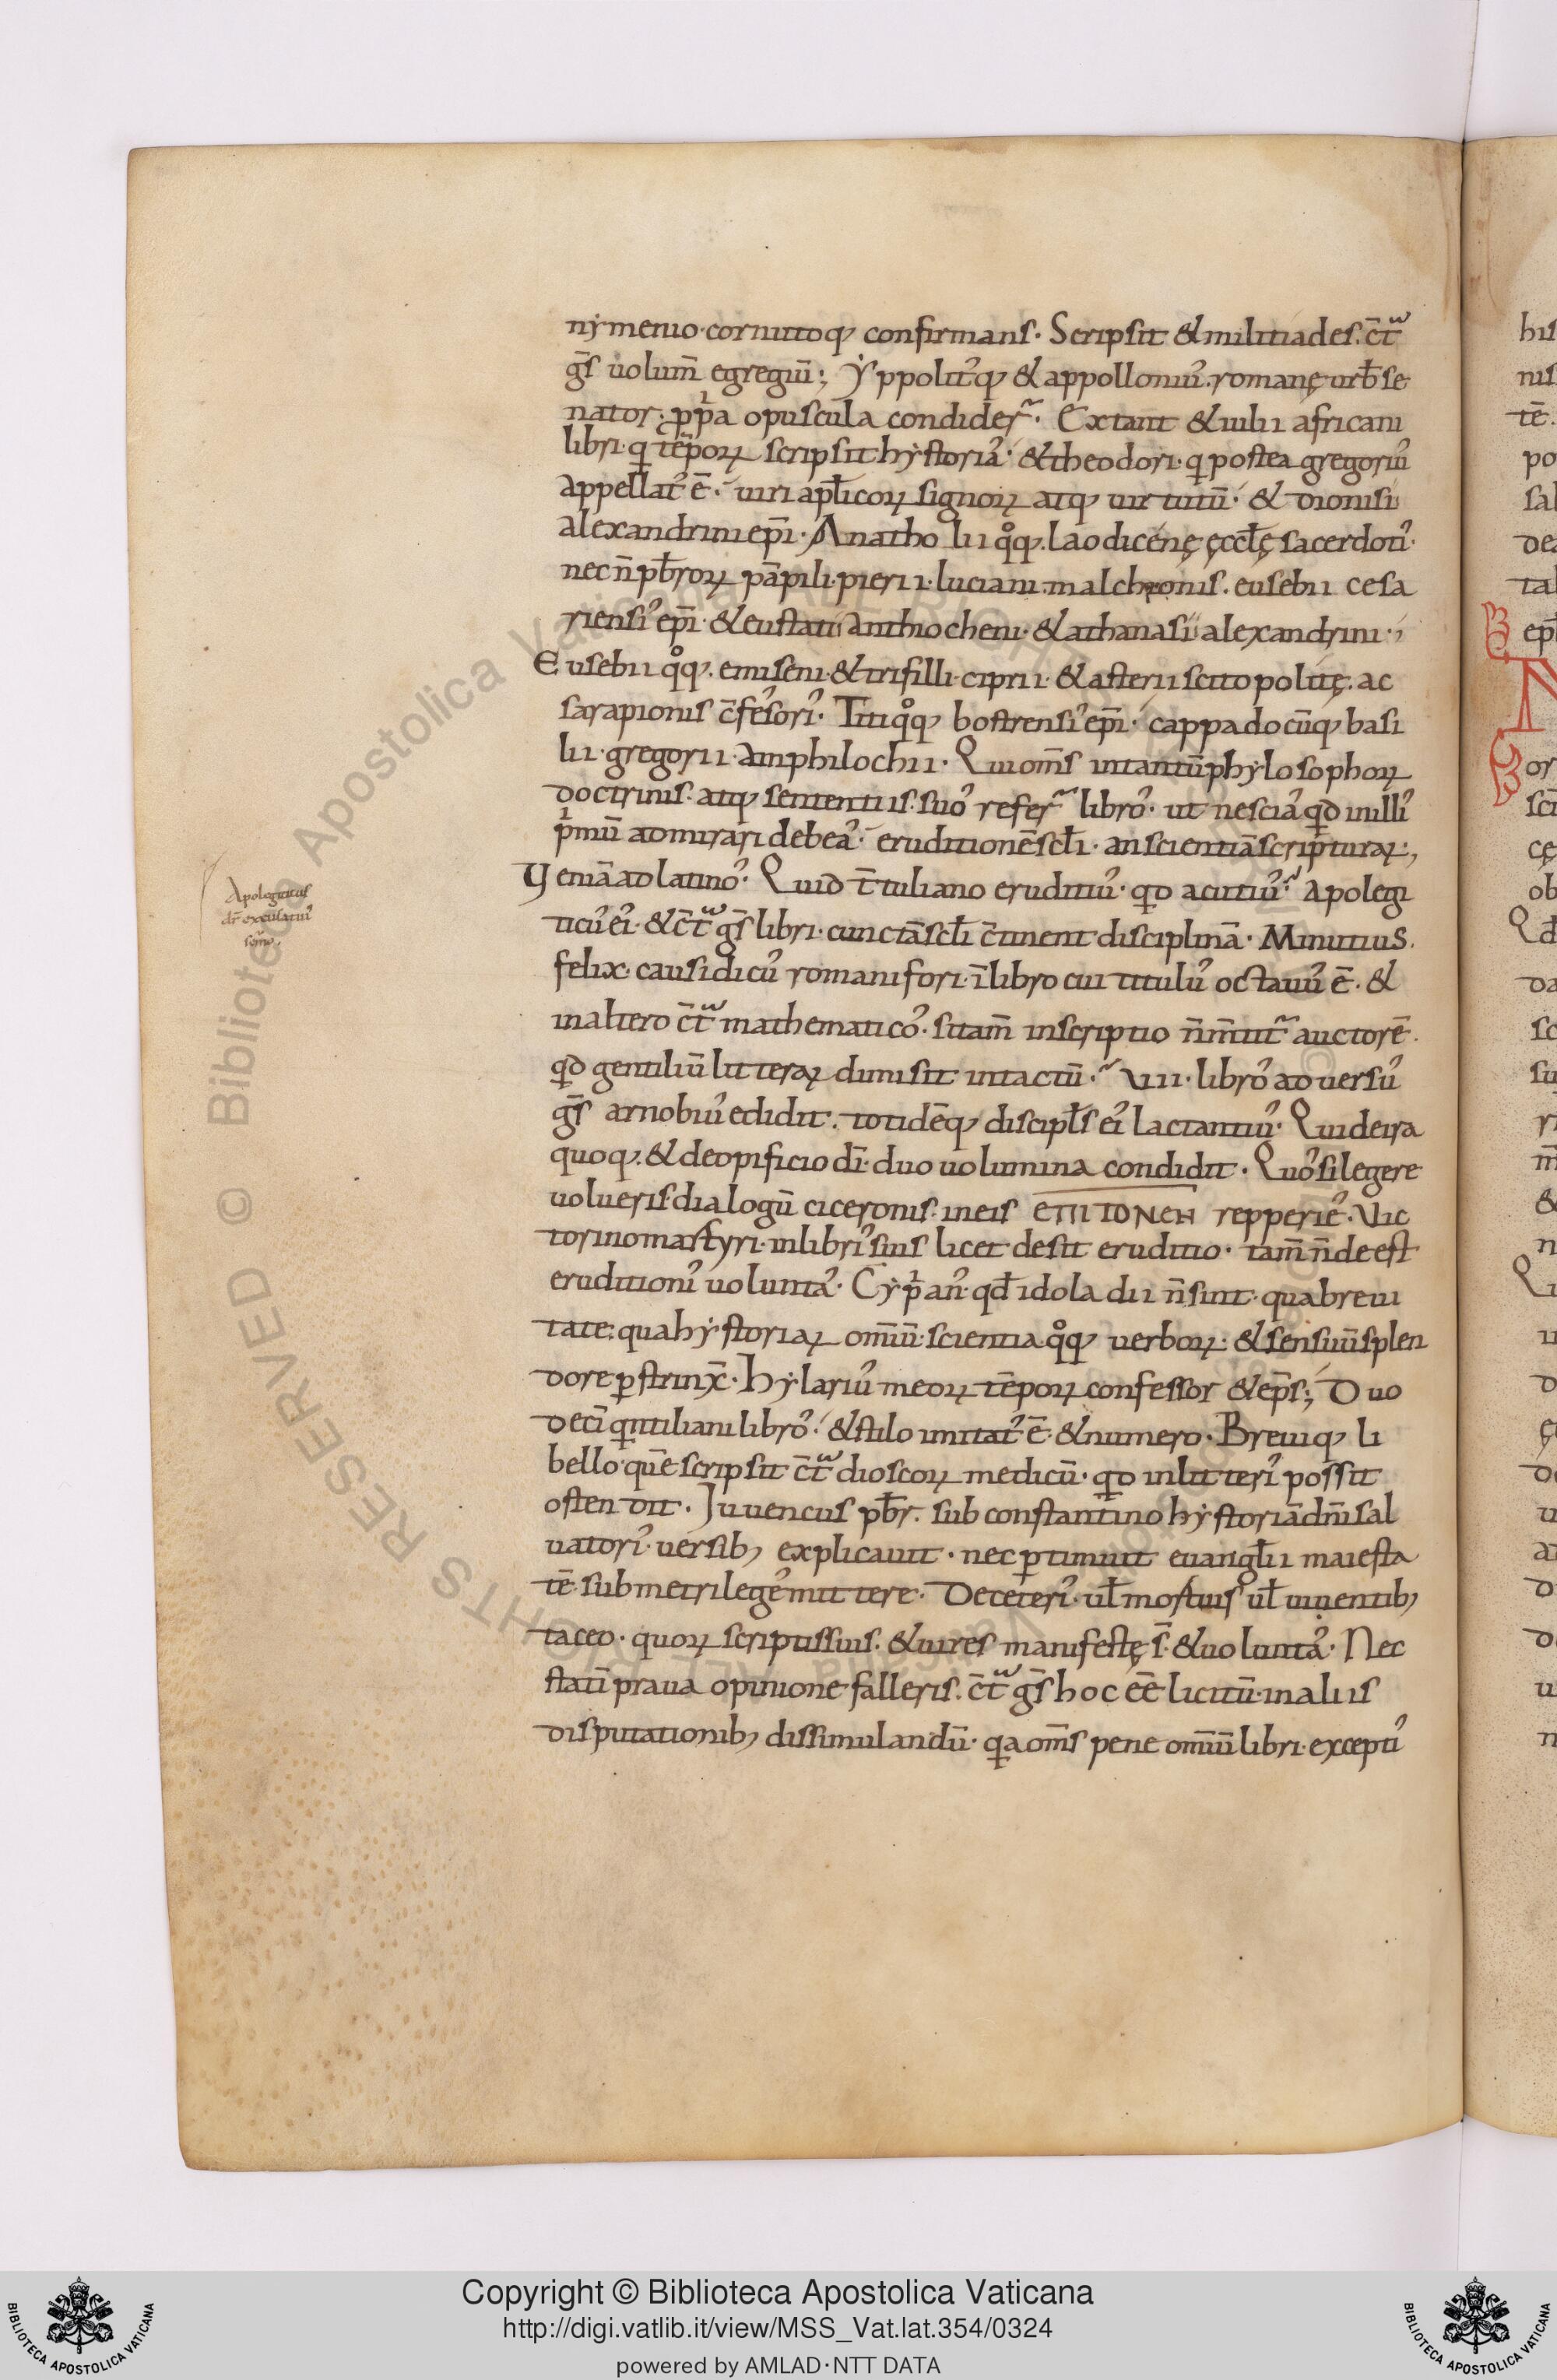 nẏmenio·cornutoq; confirmans. Scripsit &militiades.c̄tͣ
ḡs uolum̄ egregiū; ẏppolit᾽q; &appolloniu᾽.romanę urƀse
nator.ꝓpͥa opuscula condider᷑. Extant &iulii africani
libri·q temporꝝ scripsit hẏstoria᾽·&theodori·q postea gregoriu᾽
appellat᾽ē·uiri apłicorꝝ signorꝝ atq; uirtutū·& dionisi
alexandrini ep̄i·Anatholii qͦq;.laodicenę ęccłę sacerdoti᾽·
nec n̄ pƀrorꝝ pāpili·pierii·luciani.malchionis.eusebii cesa
riensi᾽ ep̄i·&eustatii anthiocheni·&athanasii alexandrini·
Eusebii qͦq;.emiseni·&trifilli·ciprii·&asterii scitopolitę.ac
sarapionis c̄fe᾽sori᾽·Titi qͦq; bostrensi᾽ep̄i·cappadocūq; basi
lii·gregorii·amphilochii·Qui om̄s intantū phẏlosophorꝝ
doctrinis·atq; sententiis·suo᾽ refer᷑ libro᾽·ut nescia᾽ qd inilli᾽
pͥmū admirari debea᾽·eruditionē scłi·an scientiā scripturaꝝ;
Ueniā ad latino᾽·Quid t̄tuliano eruditiu᾽·qd acutiu᾽·Apolegi
ticu᾽ei᾽·&c̄tͣ ḡs libri·cunctā scłi c̄tinent disciplinā·Minutius.
felix·causidicu᾽ romani fori·ī libro cui titulu᾽ octauiu᾽ ē·&
in altero c̄tͣ mathematico᾽·sitam̄ inscriptio n̄ m̄tit᷑ auctorē·
qd gentiliū litteraꝝ dimisit intactū·VIII·libro᾽ aduersu᾽
ḡs arnobiu᾽ edidit.totidēq; discipłs ei᾽ lactantiu᾽·Qui deira
quoq;.&deopificio dī·duo uolumina condidit·Quo᾽silegere
uolueris·dialogū ciceronis·in eis ЄΠΙΤΟΝЄΗ repperie᾽·Vic
torino martyri·inlibri᾽suis licet desit eruditio·tam̄ n̄ deest
eruditioni᾽ uolunta᾽·Cẏpͥan᾽·qđ idola dii n̄ sint·qua breui
tate:qua hẏstoriaꝝ omniū·scientia qͦq; uerborꝝ·&sensuū splen
dore ꝑstrinx̄·Hẏlariu᾽ meorꝝ tēporꝝ confessor &ep̄s; Duo
decī qntiliani libro᾽·&stilo imitat᾽ ē·&numero·Breuiq; li
bello·quē scripsit c̄tͣ dioscorꝝ medicū·qd inlitteri᾽ possit
ostendit.Iuuencus pƀr.sub constantino hẏstoriā dn̄i sal
uatori᾽·uersib; explicauit·nec ꝑtimuit euangłii maiesta
tē·submetri lege᾽ mittere·Deceteri᾽·uł mortuis uł uiuentib;
taceo·quorꝝ scriptis suis·&uires manifestę s̄·&uolunta᾽·Nec
statī praua opinione falleris.c̄tͣ ḡs hoc ēē licitū·inaliis
disputationib; dissimulandū·qa om̄s pene omniū libri·excepti᾽
Apologiticus
dr̄ excusatiu᾽
Copyright © Biblioteca Apostolica Vaticana
http://digi.vatlib.it/view/MSS_Vat.lat.354/0324
powered by AMLAD·NTT DATA
BIBLIOTECA APOSTOLICA VATICANA
BIBLIOTECA APOSTOLICA VATICANA